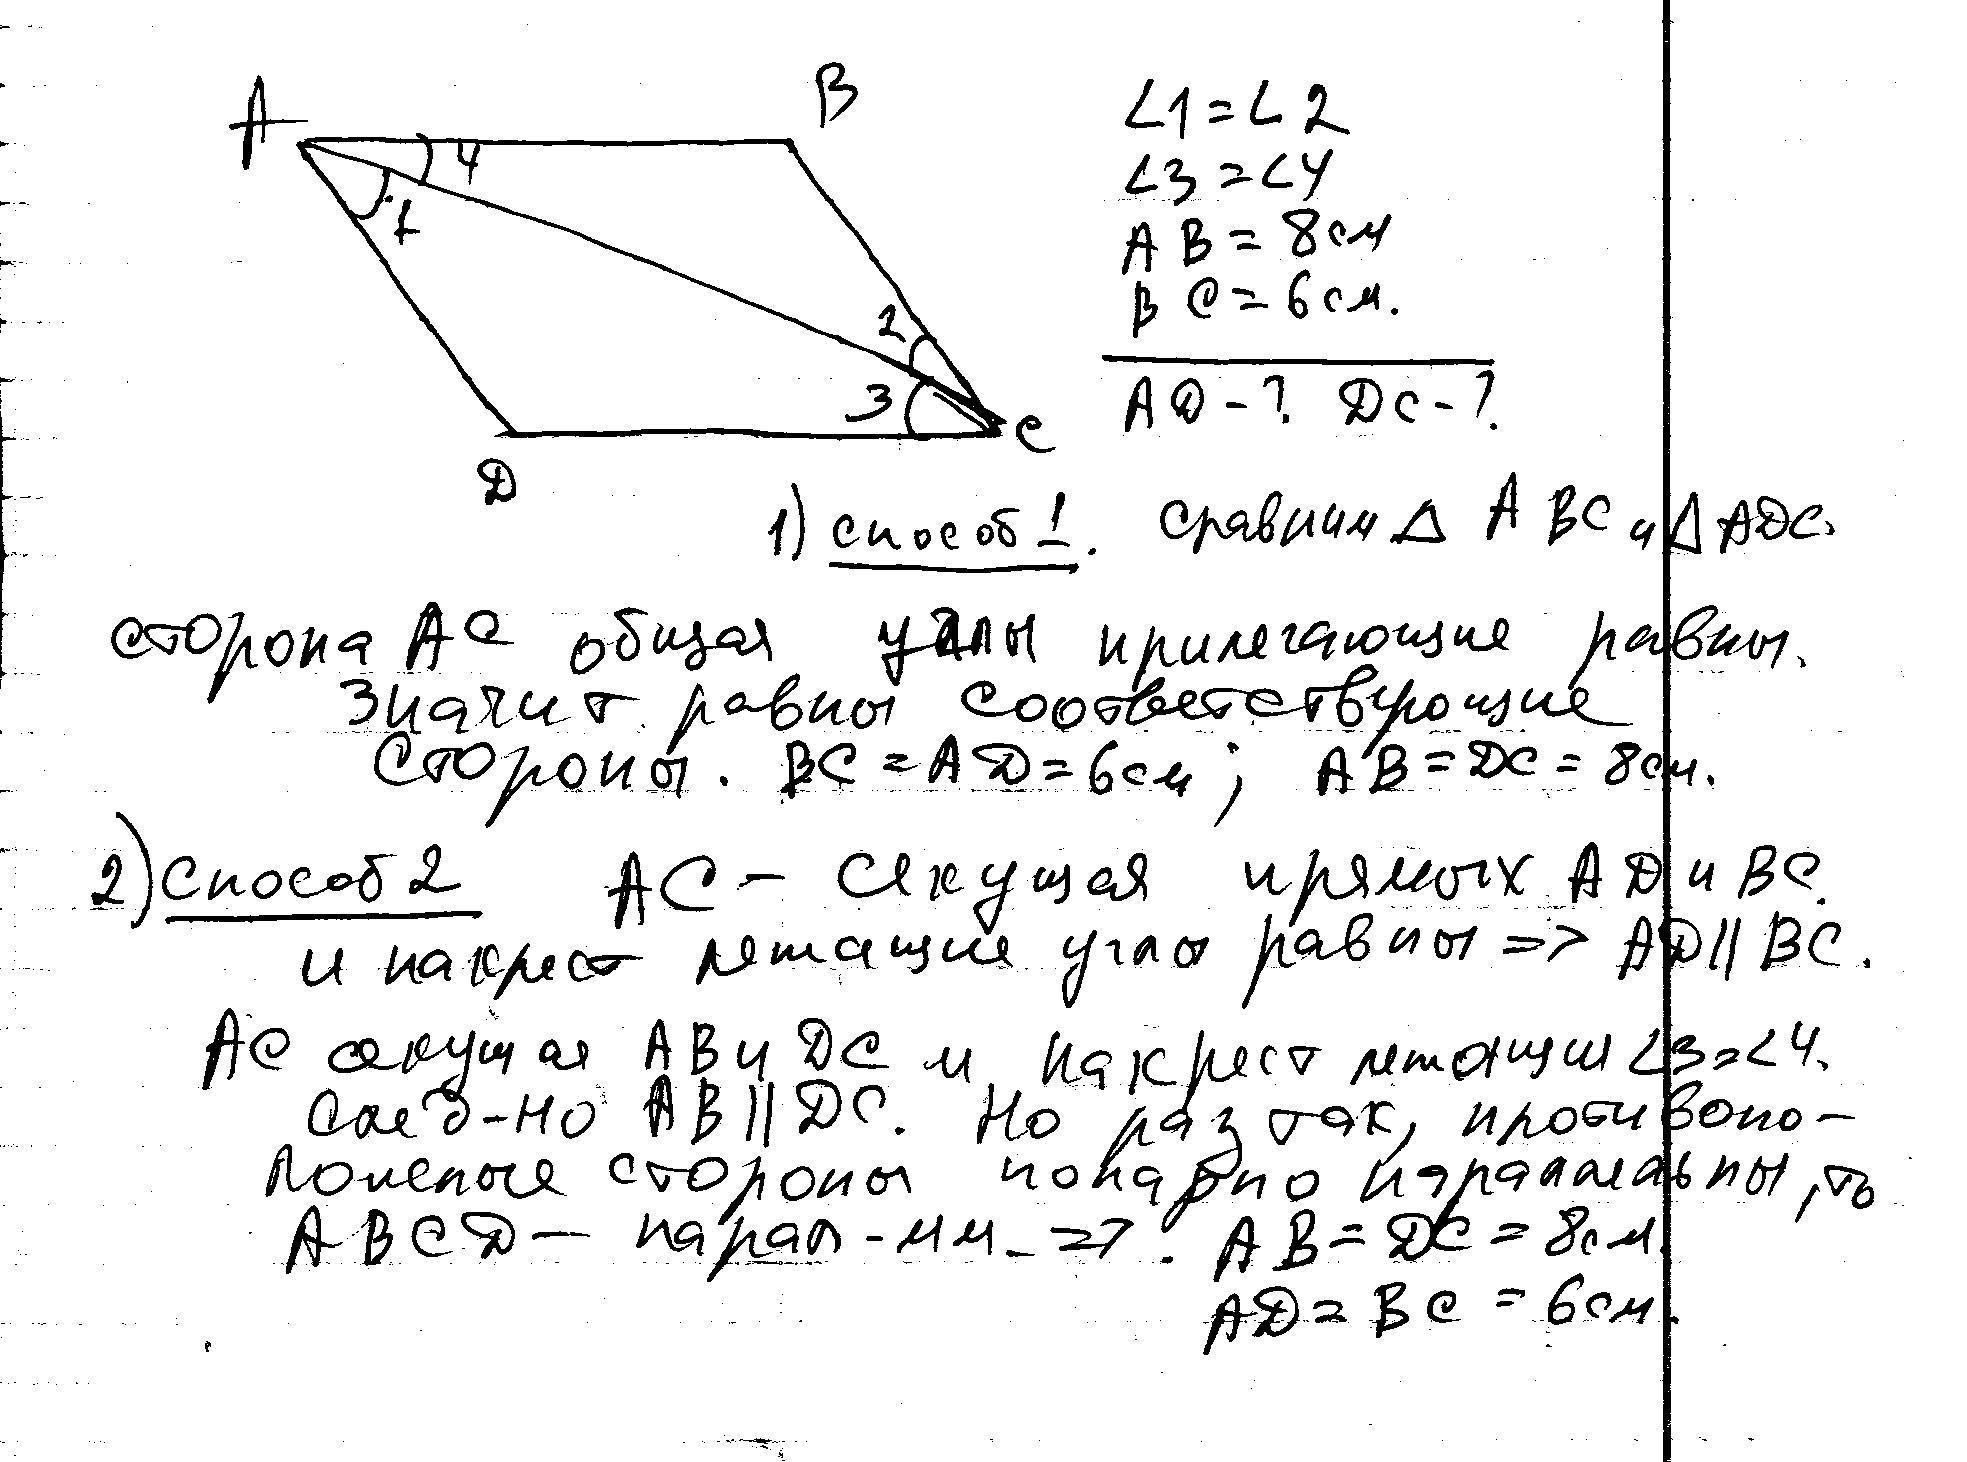 A
B
4
1
2
3
C
D
∠1=∠2
∠3=∠4
AB=8см
BC=6см.
AD-? DC-?
1) способ 1. Сравним △ ABC и △ADC.
сторона AC общая углы прилегающие равны.
Значит равны соответствующие
стороны. BC=AD=6см; AB=DC=8см.
2) Способ 2 AC - секущая прямых AD и BC.
и накрест лежащие углы равны => AD||BC.
AC секущая AB и DC и накрест лежащии ∠3=∠4.
след-но AB||DC. Но раз так, противопо-
ложные стороны попарно параллельны, то
ABCD - парал-мм. =>. AB=DC=8см.
AD=BC=6см.